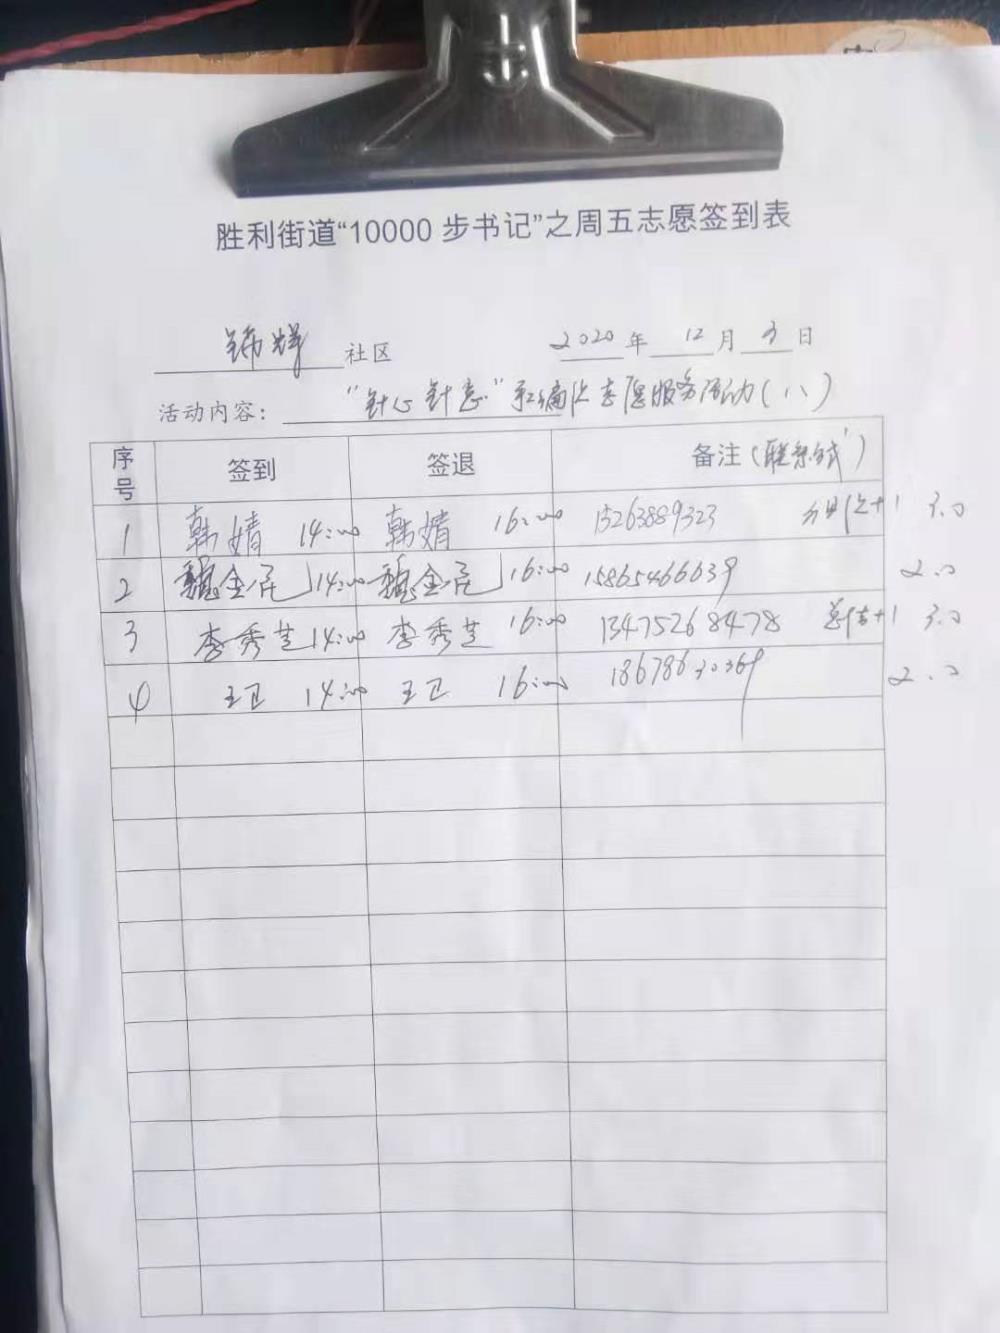 胜利街道“10000 步书记”之周五志愿签到表
锦祥 社区 2020 年 12 月 3 日
活动内容: “针心针意”手编 志愿服务活动(八)
序号 签到 签退 备注(联系方式)
1 韩婧 14:00 韩婧 16:00 15263889323 +1 3.0
2 魏金民 14:00 魏金民 16:00 15865466639 2.0
3 李秀芝 14:00 李秀芝 16:00 13475268478 总结+1 3.0
4 王卫 14:00 王卫 16:00 18678630369 2.0